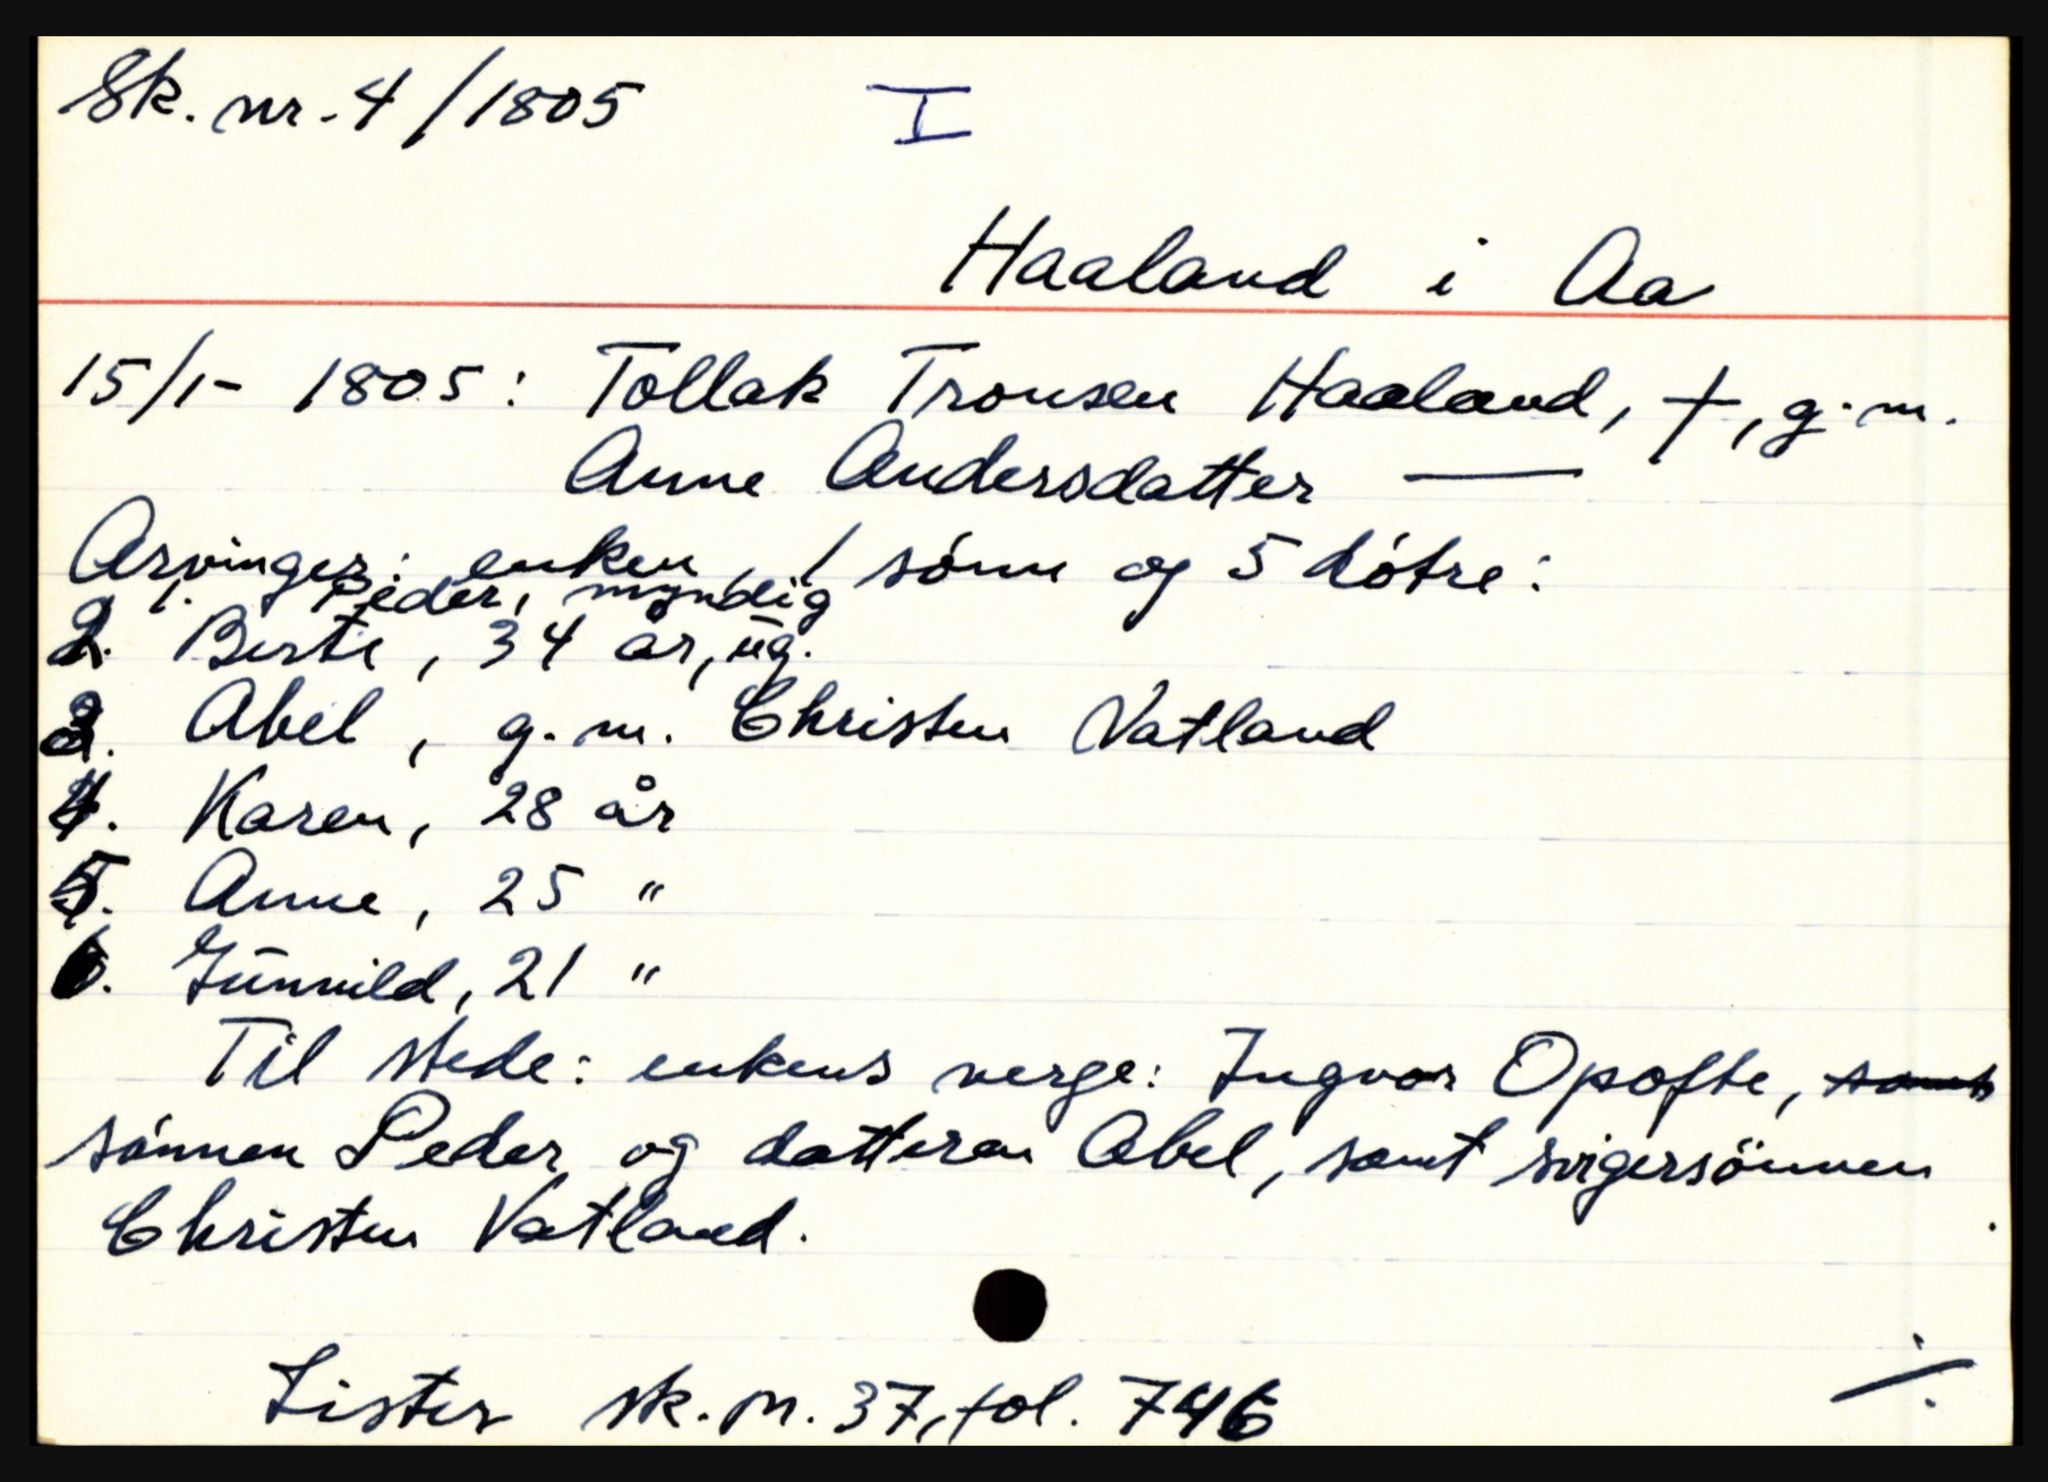 Sk. nr. 4/1805 I
Haaland i Aa
15/1- 1805: Tollak Tronsen Haaland, †, g.m.
Anne Andersdatter —
Arvinger: enken, 1 sónn og 5 dótre:
1. Peder, myndig
2. Berte, 34 år, ug.
3. Abel, g.m. Christen Vatland
4. Karen, 28 år
5. Anne, 25 "
6. Gunnild, 21 "
Til stede: enkens verge: Ingvar Opofte, samt
sónnen Peder og datteren Abel, samt svigersönnen
Christen Vatland.
Lister sk.pr. 37, fol. 746
./.